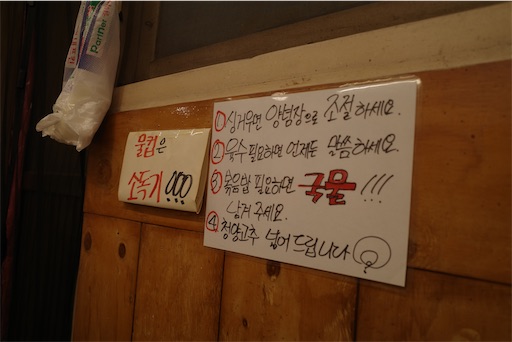 물컵은
소독기 !!!
① 싱거우면 양념장으로 조절하세요.
② 육수 필요하면 언제든 말씀하세요.
③ 볶음밥 필요하면 국물 !!!
남겨 주세요.
④ 청양고추 넣어 드립니다